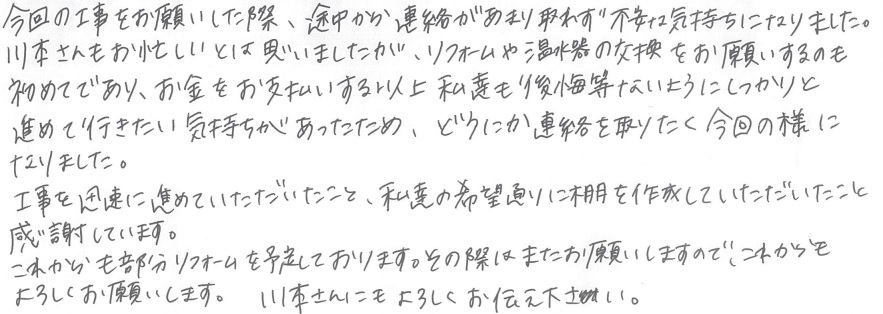 今回の工事をお願いした際、途中から連絡があまり取れず不安な気持ちになりました。
川本さんもお忙しいとは思いましたが、リフォームや温水器の交換をお願いするのも
初めてであり、お金をお支払いする以上私達も後悔等ないようにしっかりと
進めて行きたい気持ちがあったため、どうにか連絡を取りたく今回の様に
なりました。
工事を迅速に進めていただいたこと、私達の希望通りに棚を作成していただいたこと
感謝しています。
これからも部分リフォームを予定しております。その際はまたお願いしますので、これからも
よろしくお願いします。 川本さんにもよろしくお伝え下さい。